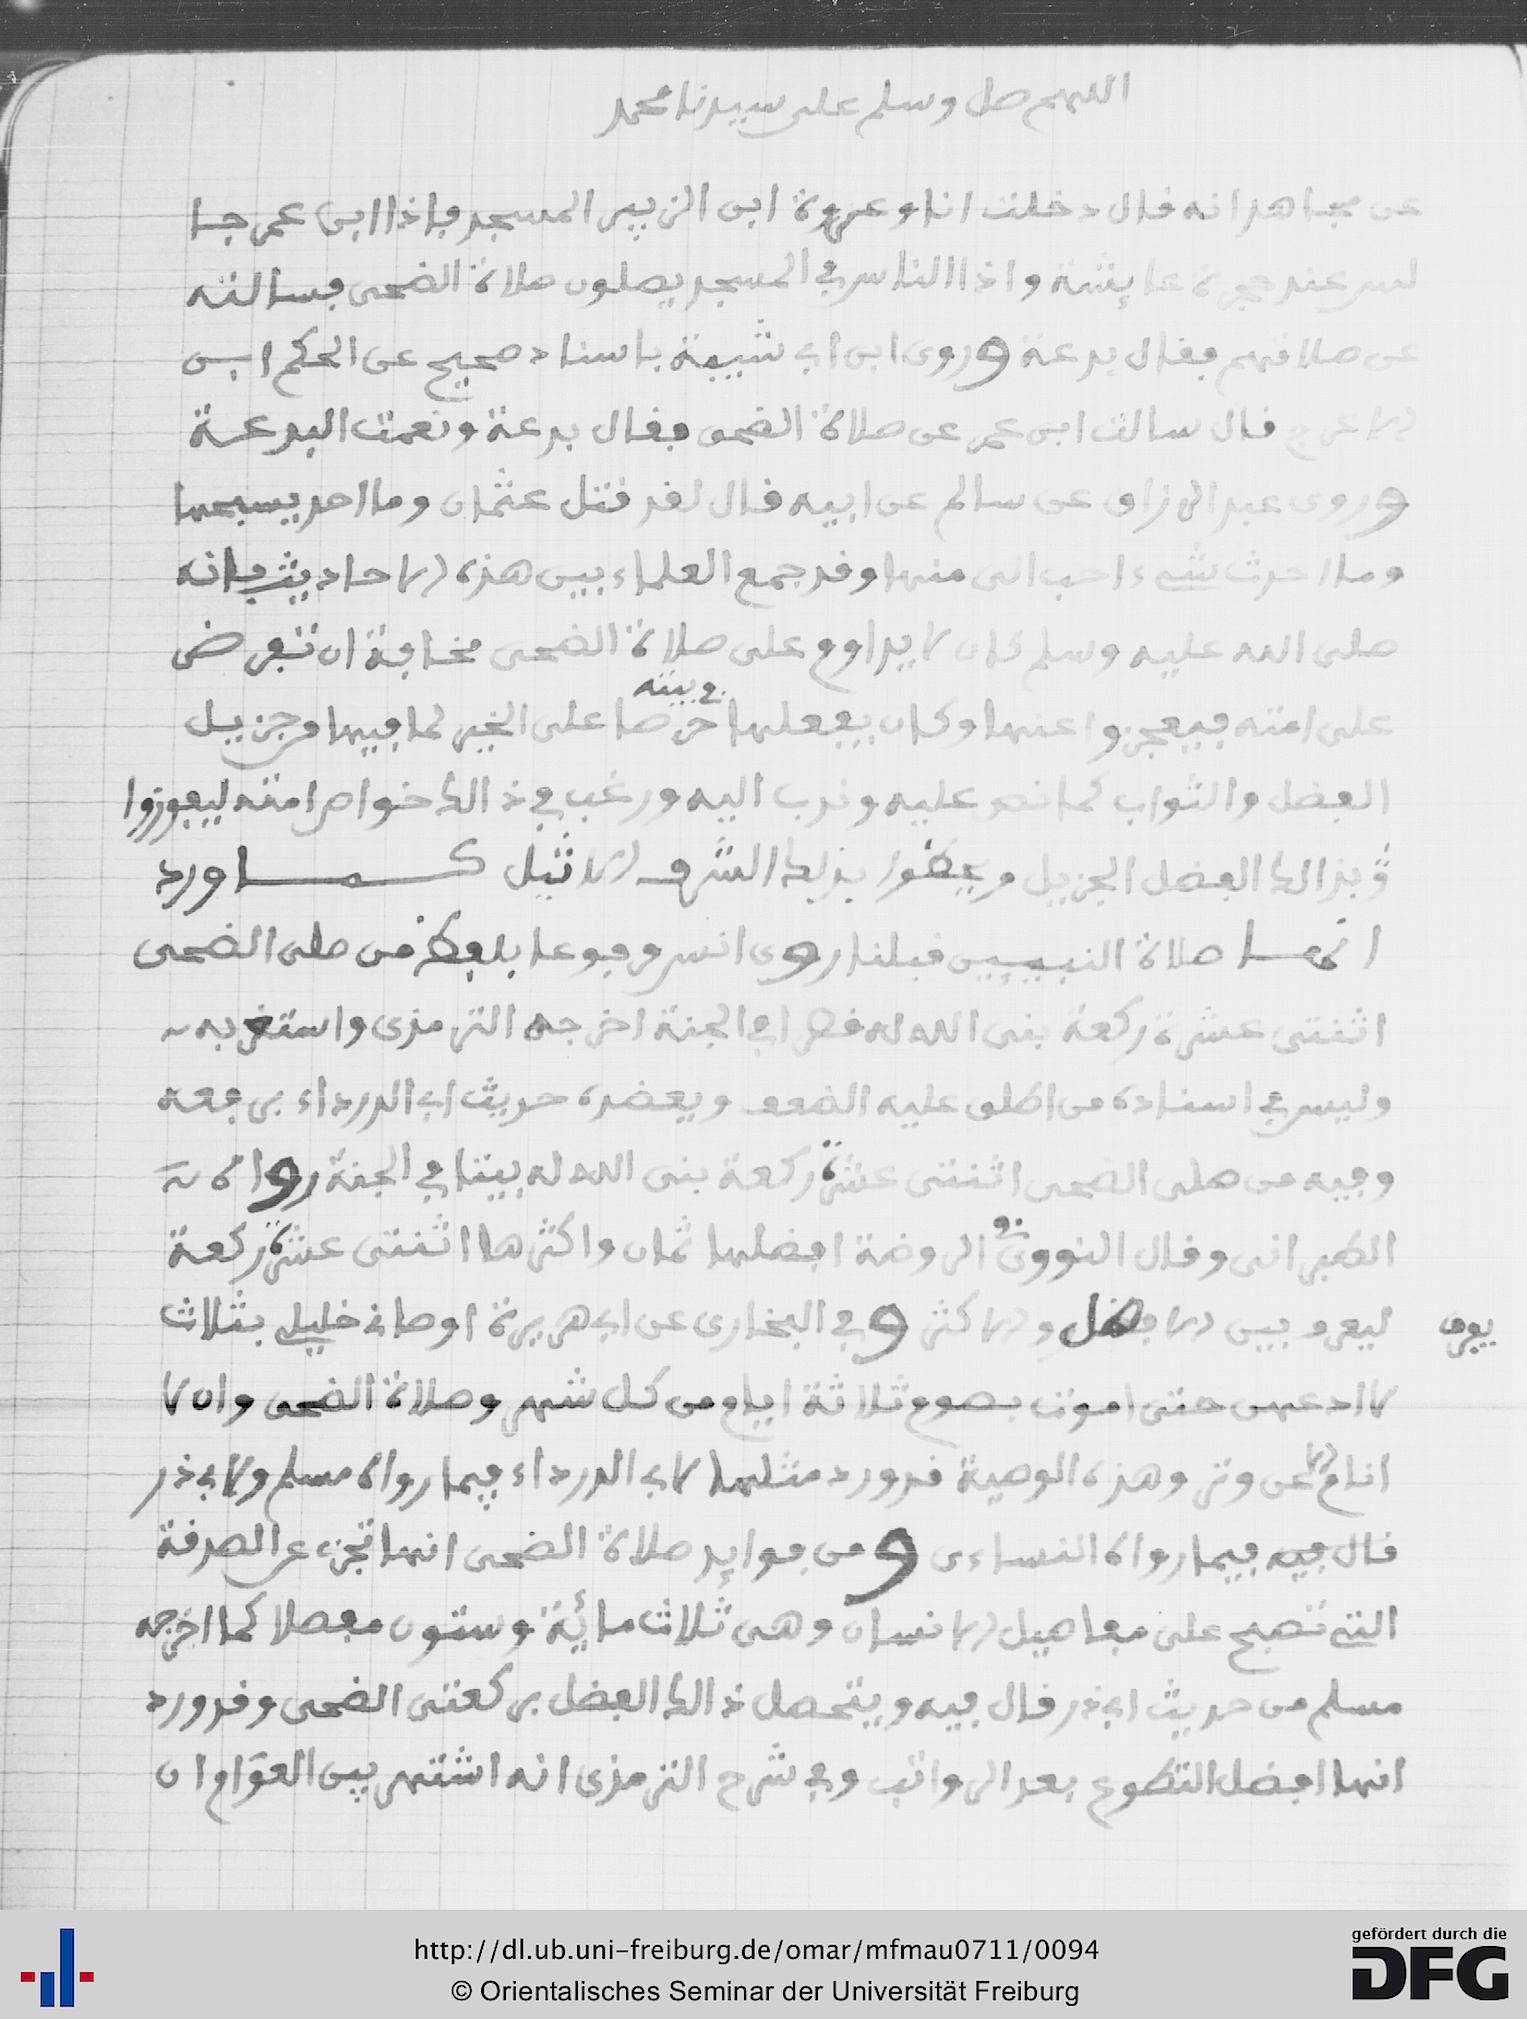 اللهم صل وسلم على سيدنا محمد
عن مجاهد انه قال دخلت انا وعروة ابن الزبير المسجد فاذا ابن عمر جا
لس عند حجرة عايشة واذا الناس في المسجد يصلون صلاة الضحى فسالته
عن صلاتهم فقال بدعة وروى ابن ابي شيبة باسناد صحيح عن الحكم ابن
الاعرج قال سالت ابن عمر عن صلاة الضحى فقال بدعة ونعمت البدعة
وروى عبد الرزاق عن سالم عن ابيه قال لقد قتل عثمان وما احد يسبحها
وما احدث شيء احب الى منها وقد جمع العلماء بين هذه الاحاديث بانه
صلى الله عليه وسلم كان لا يداوم على صلاة الضحى مخافة ان تفرض
على امته فيعجزوا عنها وكان يفعلها في بيته حرصا على الخير لما فيها من جزيل
الفضل والثواب كما نص عليه وندب اليه ورغب في ذالك خواص امته ليفوزوا
بذالك الفضل الجزيل ويحظوا بذلك الشرف الاثيل كما ورد
انها صلاة النبييين قبلنا روى انس مرفوعا بلفظ من صلى الضحى
اثنتى عشرة ركعة بنى الله له قصرا في الجنة اخرجه الترمذى واستغربه
وليس في اسناده من اطلق عليه الضعف ويعضده حديث ابي الدرداء يرفعه
وفيه من صلى الضحى اثنتى عشرة ركعة بنى الله له بيتا في الجنة رواه
الطبرانى وقال النووى في الروضة افضلها ثمان واكثرها اثنتى عشرة ركعة
ليفرق بين الافضل والاكثر وفي البخارى عن ابي هريرة اوصانى خليلى بثلاث
يفرق
لا ادعهن حتى اموت بصوم ثلاثة ايام من كل شهر وصلاة الضحى وان لا
انام الا عن وتر وهذه الوصية قد ورد مثلها لابي الدرداء فيما رواه مسلم ولابي ذر
قال فيه فيما رواه النساءى ومن فوايد صلاة الضحى انها تجزء عن الصدقة
التى تصبح على مفاصيل الانسان وهى ثلاث مائية وستون مفصلا كما اخرجه
مسلم من حديث ابي ذر قال فيه ويتحصل ذالك الفضل بركعتى الضحى وقد ورد
انها افضل التطوع بعد الرواتب وفي شرح الترمذى انه اشتهر بين العوام ان
http://dl.ub.uni-freiburg.de/omar/mfmau0711/0094
© Orientalisches Seminar der Universität Freiburg
gefördert durch die
DFG